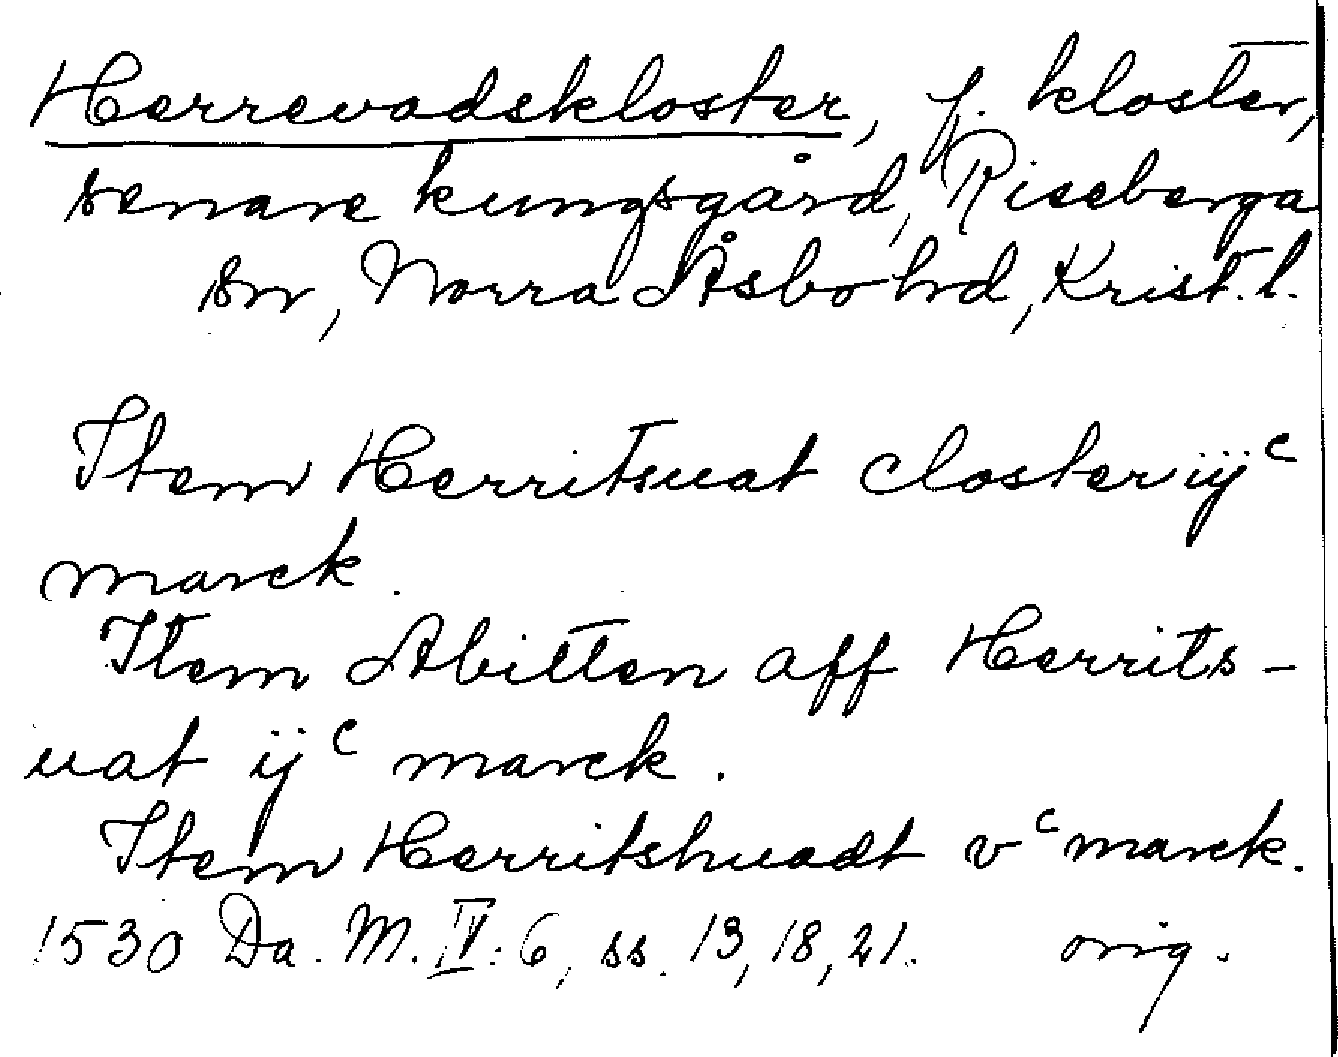 Herrevadskloster, f. kloster,
senare kungsgård, Riseberga
sn, Norra Åsbo hd, Krist. l.
Item Herritsuat closter iij^c
marck.
Item Abitten aff Herrits-
uat ij^c marck.
Item Herritshuadt v^c marck.
1530 Da. M. IV: 6, ss. 13, 18, 21. orig.